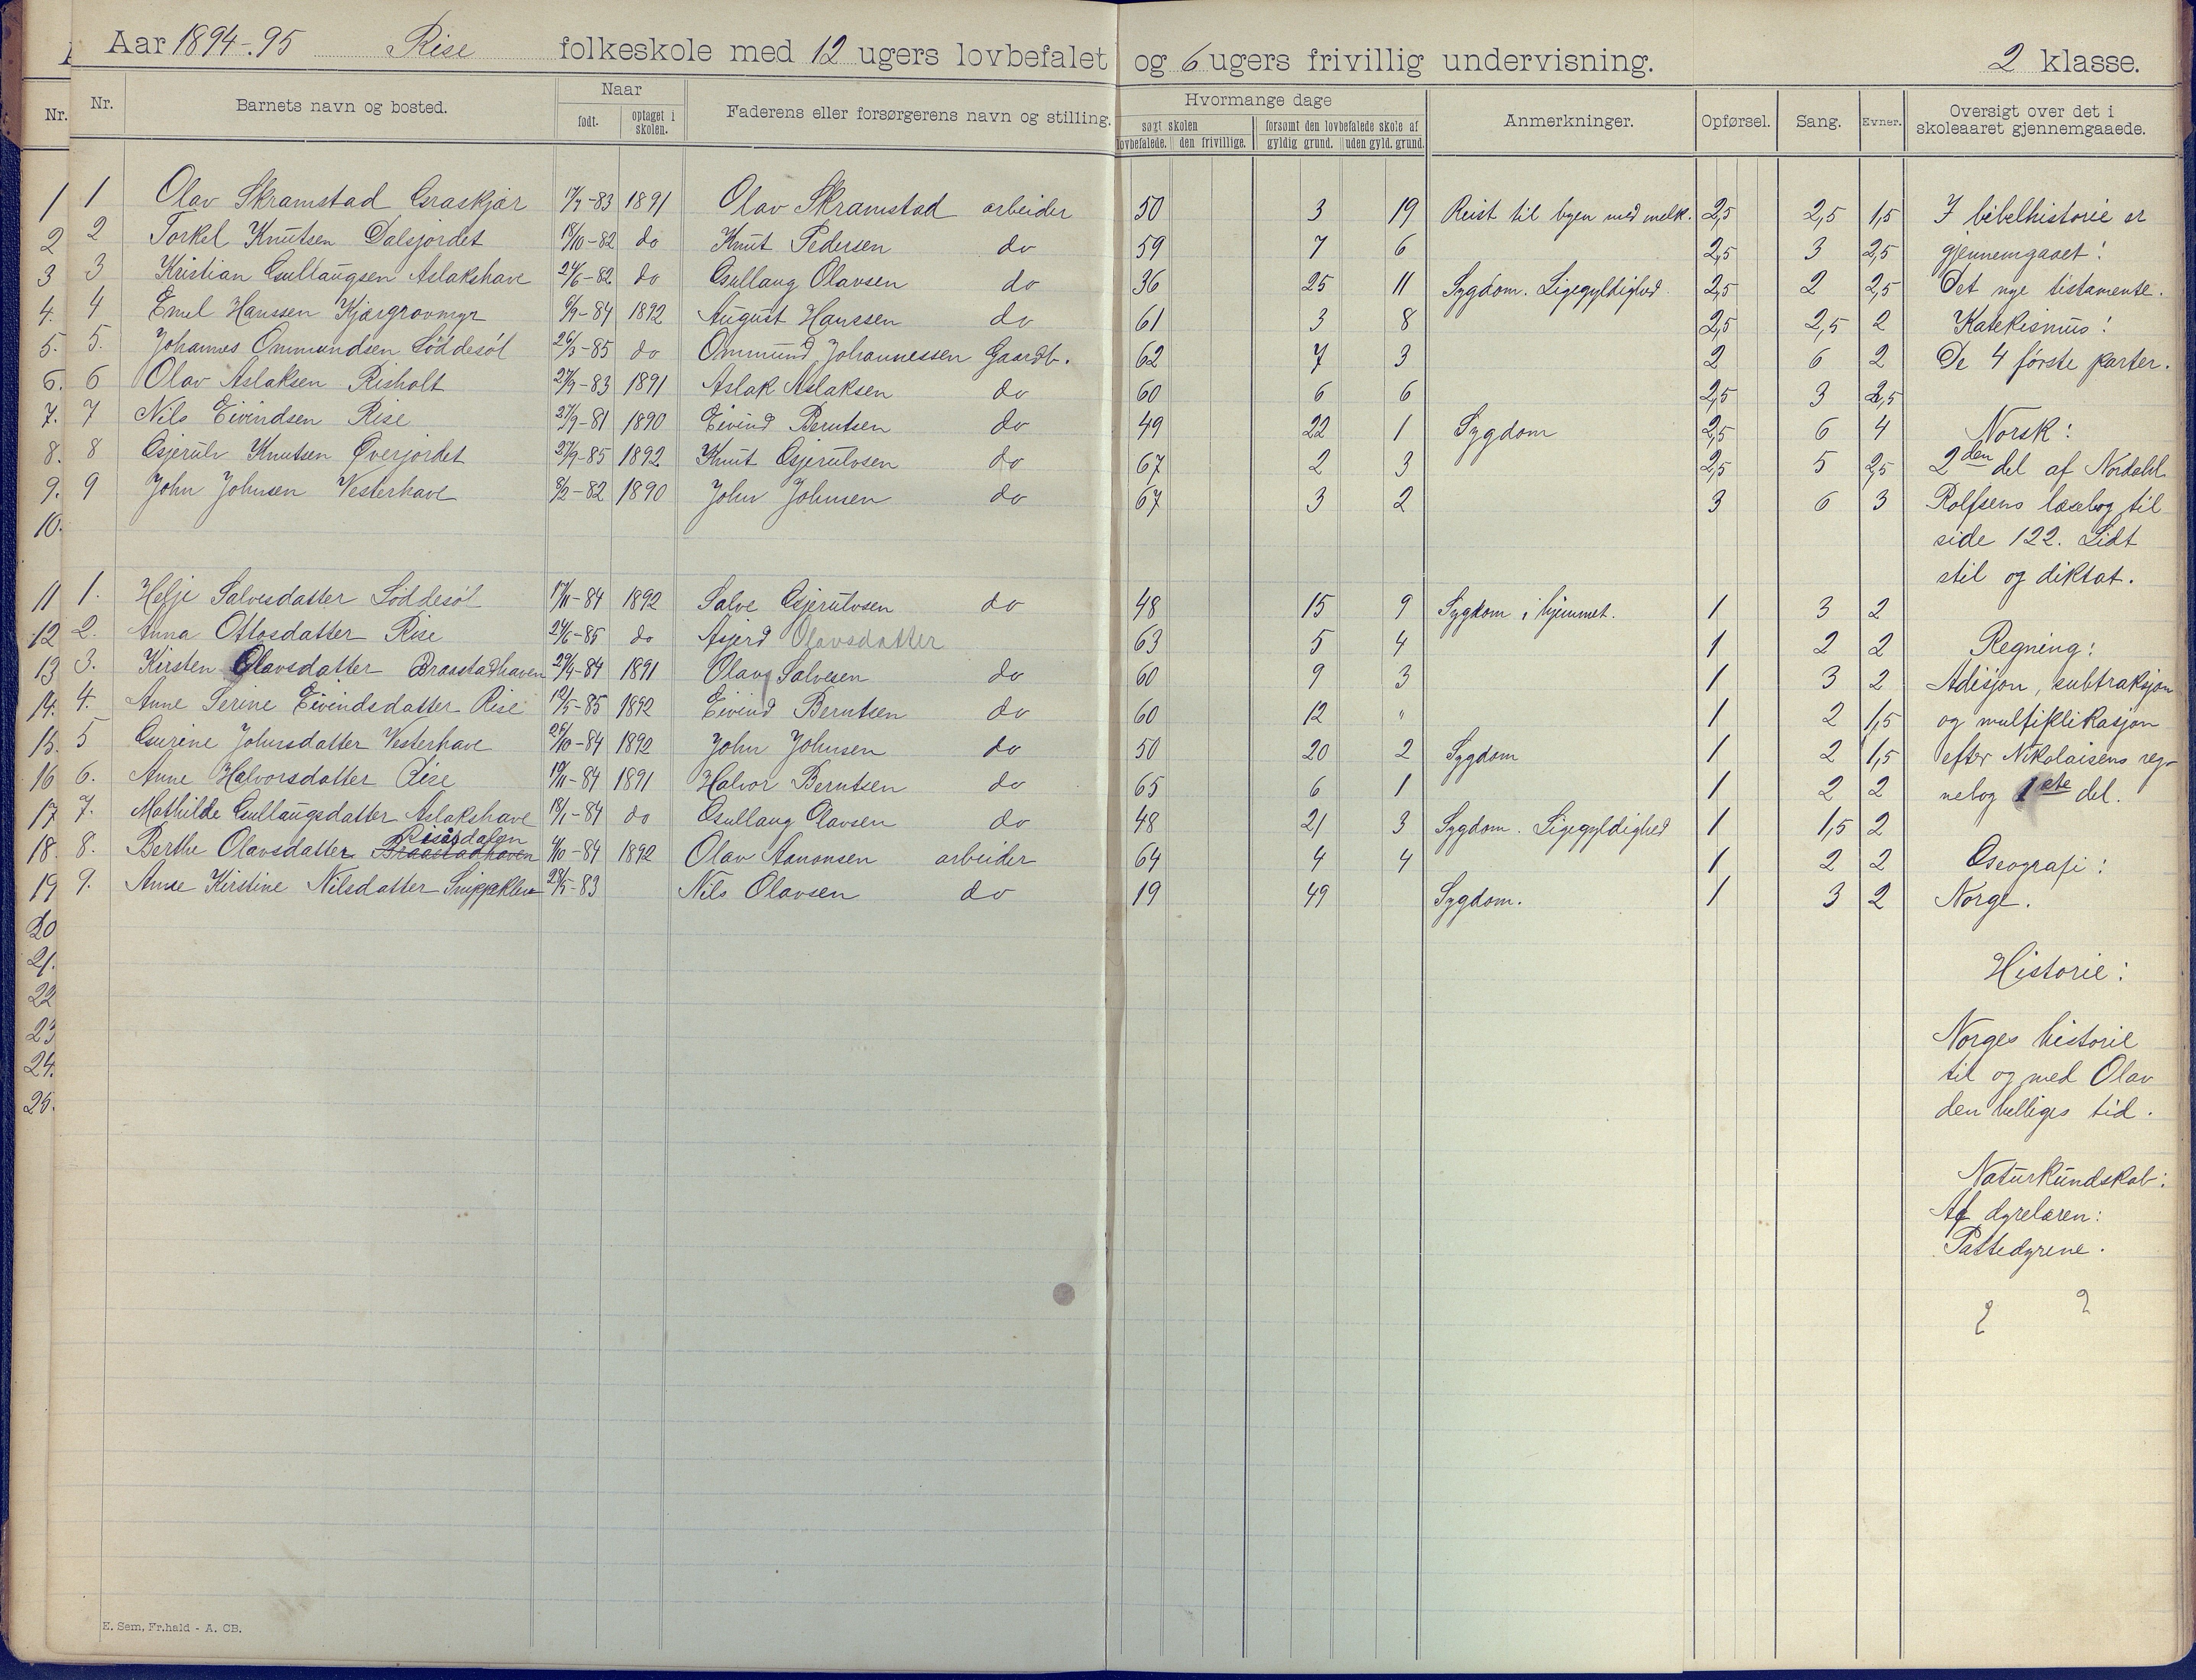 Aar 1894-95 Rise folkeskole med 12 ugers lovbefalet og 6 ugers frivillig undervisning. 2 klasse.
Nr. Nr. Barnets navn og bosted. Naar født. optaget i skolen. Faderens eller forsørgerens navn og stilling. Hvormange dage søgt skolen lovbefalede. den frivillige. forsømt den lovbefalede skole af gyldig grund. uden gyld. grund. Anmerkninger. Opførsel. Sang. Evner. Oversigt over det i skoleaaret gjennemgaaede.
1 1 Olav Skramstad Graskjær 17/7-83 1891 Olav Skramstad arbeider 50 3 19 Reist til byen med melk. 2,5 2,5 1,5 I bibelhistorie er
2 2 Torkel Knutsen Dalsjordet 18/10-82 do Knut Pedersen do 59 7 6 2,5 3 2,5 gjennemgaaet:
3 3 Kristian Gullaugsen Aslakshave 24/6-82 do Gullaug Olavsen do 36 25 11 Sygdom. Ligegyldighed. 2,5 2 2,5 Det nye testamente.
4. 4 Emil Hanssen Kjærgrovmyr 6/9-84 1892 August Hanssen do 61 3 8 2,5 2,5 2 Katekismus:
5. 5. Johannes Ommundsen Løddesøl 26/3-85 do Ommund Johannessen Gaardb. 62 7 3 2 6 2 De 4 første parter.
6. 6 Olav Aslaksen Risholt 27/9-83 1891 Aslak Aslaksen do 60 6 6 2,5 3 2,5
7. 7 Nils Eivindsen Rise 27/9-81 1890 Eivind Berntsen do 49 22 1 Sygdom 2,5 6 4 Norsk:
8. 8 Gjerulv Knutsen Øverjordet 27/9-85 1892 Knut Gjerulvsen do 67 2 3 2,5 5 2,5 2den del af Nordahl
9. 9 John Johnsen Vesterhave 8/2-82 1890 John Johnsen do 67 3 2 3 6 3 Rolfsens læsebog til
10. side 122. Lidt
stil og diktat.
11 1. Helje Salvesdatter Løddesøl 17/11-84 1892 Salve Gjerulvsen do 48 15 9 Sygdom i hjemmet. 1 3 2
12 2. Anna Ottosdatter Rise 24/6-85 do Asjerd Olavsdatter 63 5 4 1 2 2 Regning:
13 3. Kirsten Olavsdatter Braastadhaven 29/4-84 1891 Olav Salvesen do 60 9 3 1 3 2 Adisjon, subtraksjon
14. 4. Anne Serine Eivindsdatter Rise 12/5-85 1892 Eivind Berntsen do 60 12 " 1 2 1,5 og multiplikasjon
15. 5 Gurine Johnsdatter Vesterhave 26/10-84 1892 John Johnsen do 50 20 2 Sygdom 1 2 1,5 efter Nikolaisens reg-
16 6. Anne Halvorsdatter Rise 19/11-84 1891 Halvor Berntsen do 65 6 1 1 2 2 nebog 1ste del.
17 7. Mathilde Gullaugsdatter Aslakshave 18/1-84 do Gullaug Olavsen do 48 21 3 Sygdom. Ligegyldighed 1 1,5 2
Risåsdalen
18. 8. Berthe Olavsdatter Braastadhaven 4/10-84 1892 Olav Aanonsen arbeider 64 4 4 1 2 2 Geografi:
19 9. Anne Kirstine Nilsdatter Snippekleiv 28/5-83 Nils Olavsen do 19 49 Sygdom. 1 3 2 Norge.
20
21. Historie:
22
23 Norges historie
24. til og med Olav
25. den helliges tid.
Naturkundskab:
Af dyrelæren:
Pattedyrene.
E. Sem, Fr.hald - A. CB.